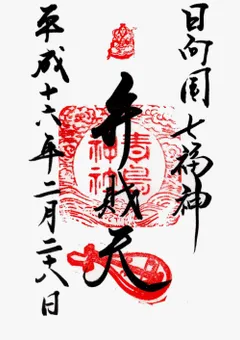 日向国七福神
弁財天
青島
神社
平成十六年二月二十八日